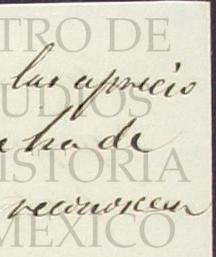 TRO DE
las aprecio
UDIOS
e ha de
ISTORIA
reconocen
MÉXICO